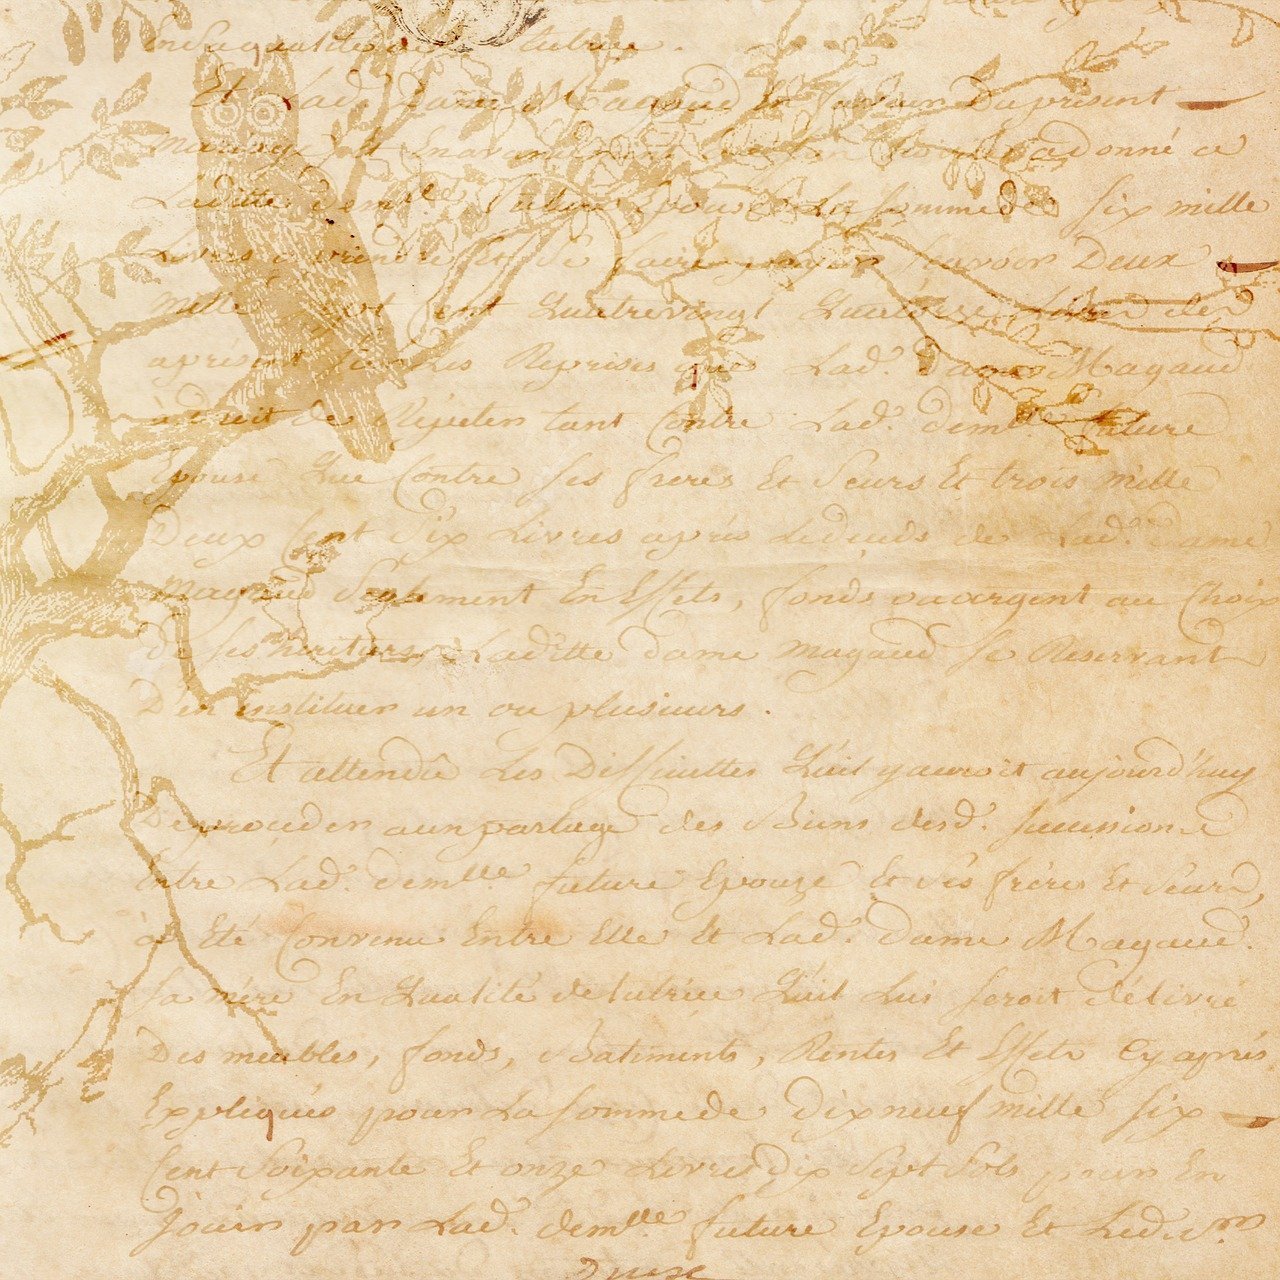 En sa qualité de tutrice.
Et lad. Dame Magaud En faveur Du présent
mariage donné a
Laditte dem.lle future Epouse La somme de six mille
Livres a prendre Et Se faire payer sçavoir Deux
mille cent Quatrevingt Quatorze Livres
a présent sur Les Reprises que Lad. Dame Magaud
à droit de Répéter tant Contre Lad. dem.lle future
Epouse Que Contre ses freres Et Seurs Et trois mille
Deux Cent dix Livres après Le décès de Lad. Dame
Magaud Seulement En Effets, fonds ou argent au Choix
De ses héritiers Laditte Dame Magaud se Réservant
D'en instituer un ou plusieurs.
Et attendû Les Difficultés Qu'il y auroit aujourd'huy
De procéder a un partage des Biens desd. succession
Entre Lad. dem.lle future Epouze Et ses frères Et Seurs,
à Eté Convenu Entre Elle Et Lad. Dame Magaud
sa mère En Qualité de tutrice Qu'il Lui seroit délivré
Des meubles, fonds, Batiments, Rentes Et Effets Cy après
Expliqués pour La somme de Dix neuf mille six
Cent Soixante Et onze Livres Dix Sept Sols pour En
Jouir par Lad. dem.lle future Epouse Et Led. s.r